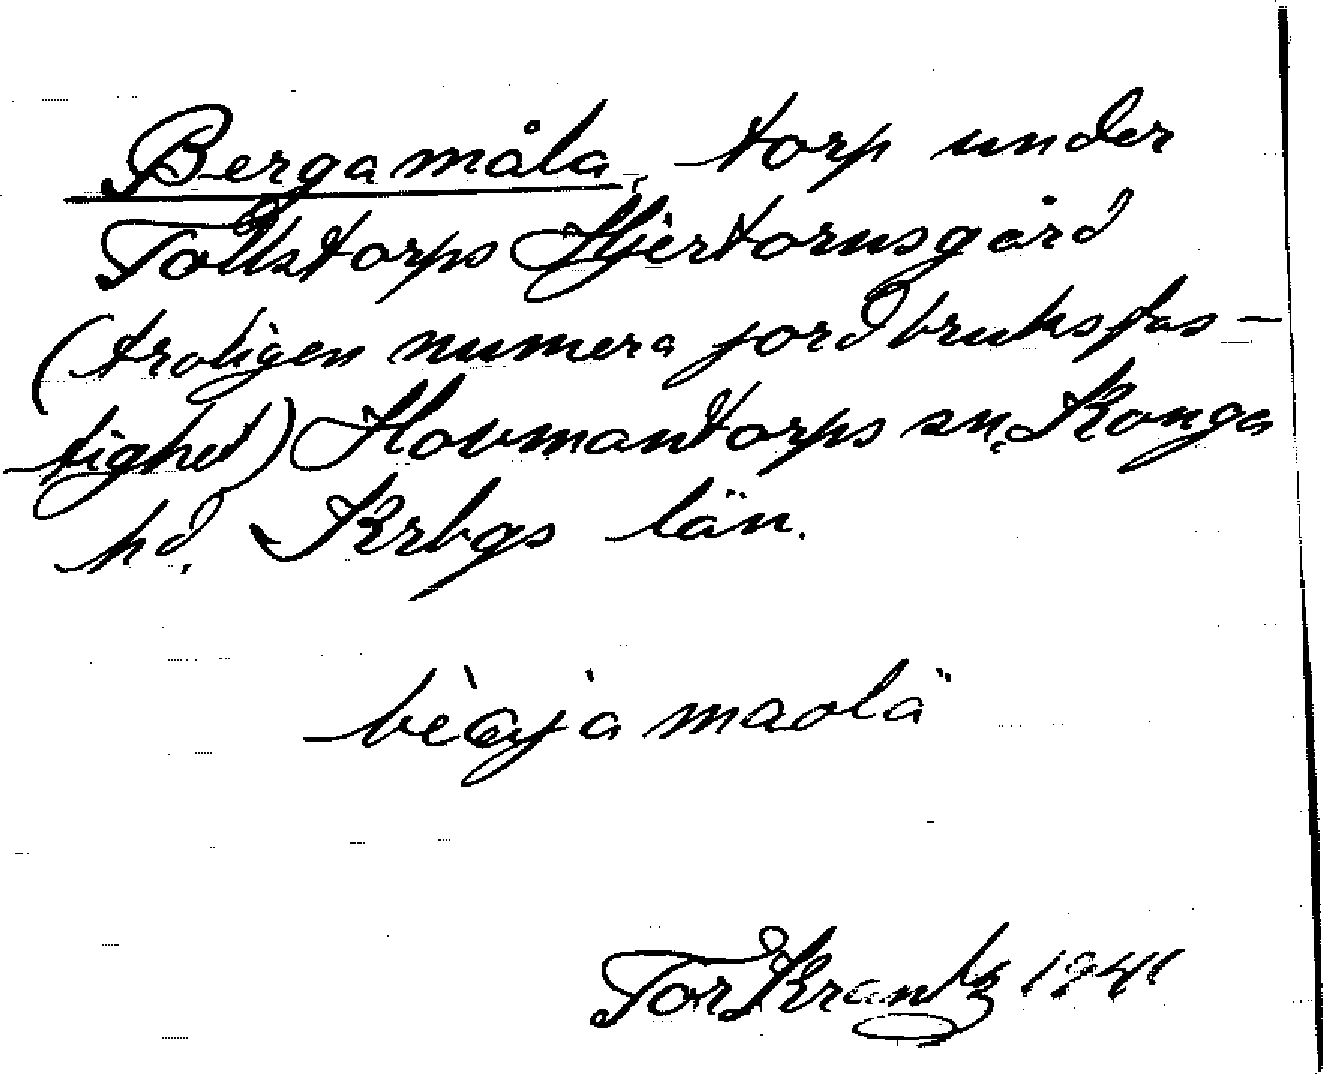 Bergamåla, torp under
Tollstorps Hjertornsgård
(troligen numera jordbruksfas-
tighet) Hovmantorps sn, Konga
hd, Krbgs län.
maolä
Tor Krantz 1941